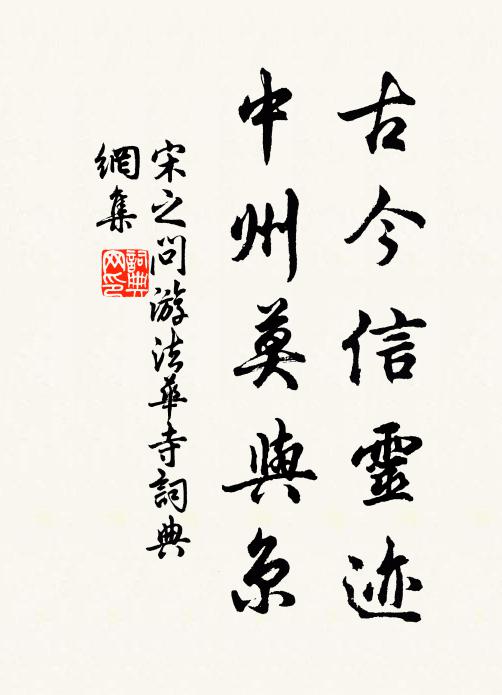 古今信靈迹
中州莫與京
宋之問游法華寺詞典
網集
詞典
网印